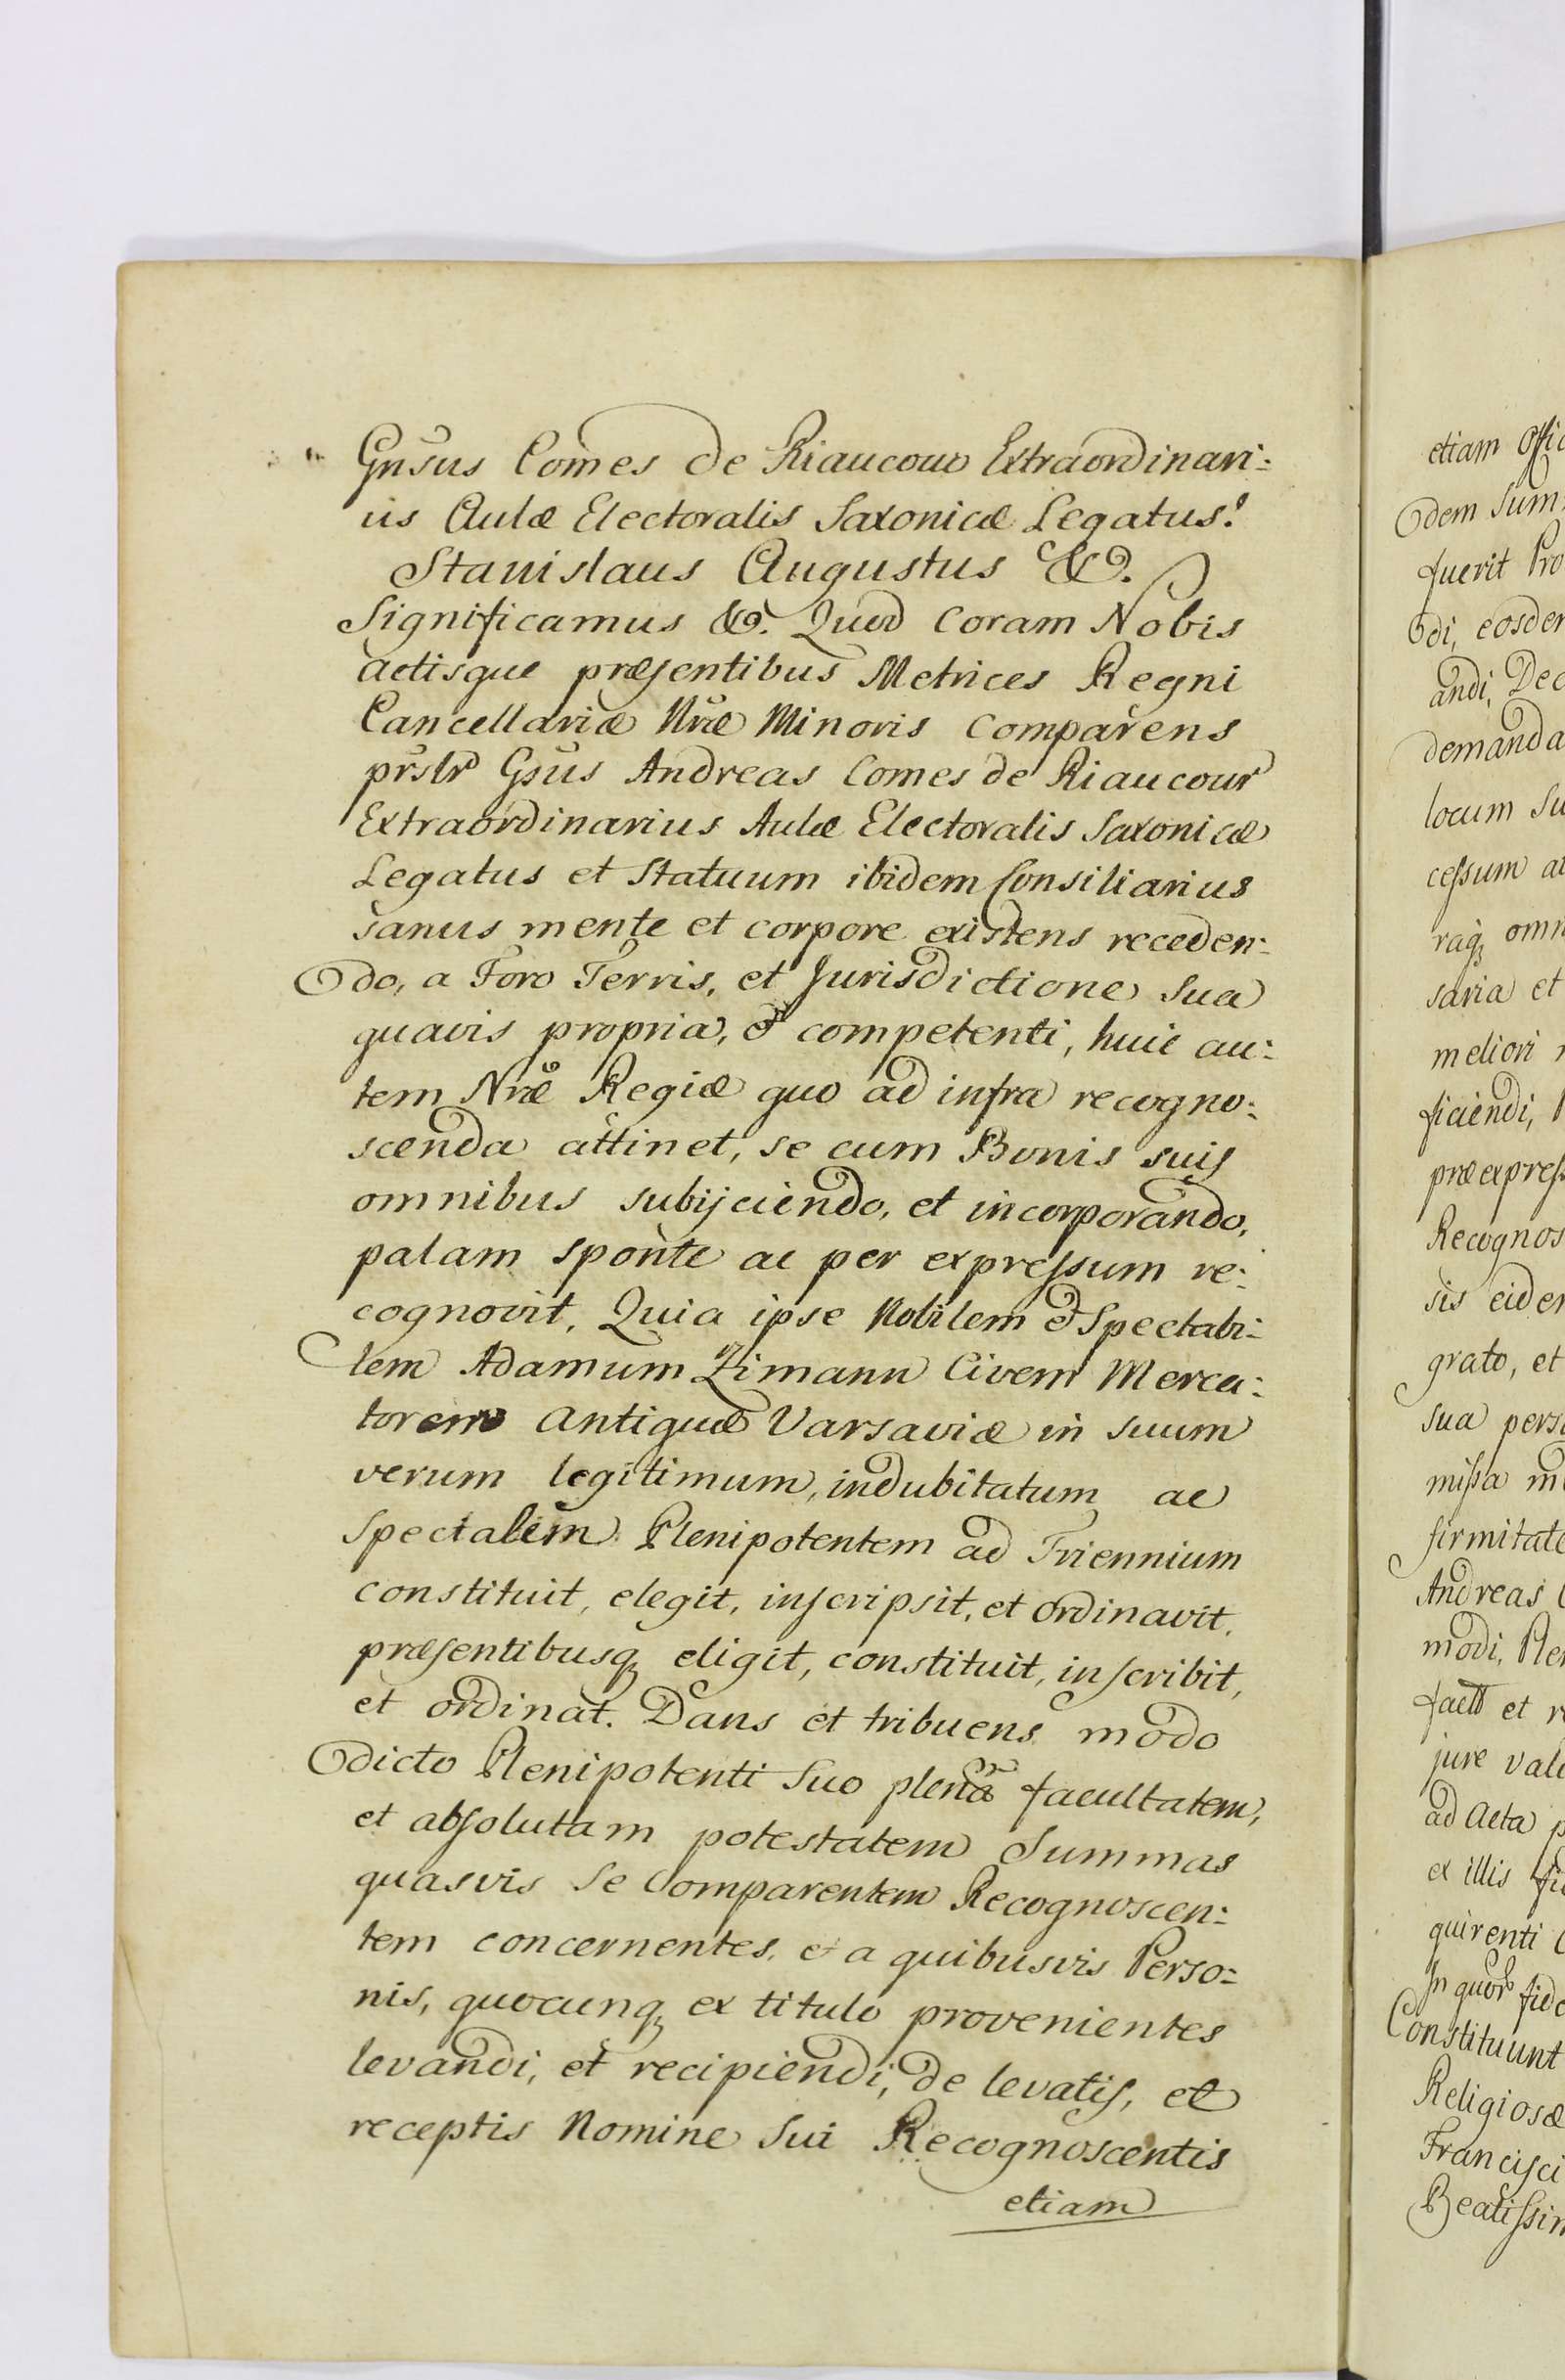 Gnsus Comes de Riaucour Extraordinari:
us Aulæ Electoralis Saxonicæ Legatus.
Stanislaus Augustus &c.
Significamus &c. Quod Coram Nobis
actisque præsentibus Metrices Regni
Cancellariæ Nræ Minoris comparens
prslr Gsus Andreas Comes de Riaucour
Extraordinarius Aulæ Electoralis Saxonicæ
Legatus et Statuum ibidem Consiliarius
sanus mente et corpore existens receden:
do, a Foro Terris, et Jurisdictione sua
quavis propria, et competenti, huic au:
tem Nræ Regiæ quo ad infra recogno:
scenda attinet, se cum Bonis suis
omnibus subijciendo, et incorporando,
palam sponte ac per expressum re:
cognovit, Quia ipse Nobilem et Spectabi:
lem Adamum Zimann Civem Merca:
torem Antiquæ Varsaviæ in suum
verum legitimum, indubitatum ac
Specialem Plenipotentem ad Triennium
constituit, elegit, inscripsit, et ordinavit,
præsentibusq eligit, constituit, inscribit,
et ordinat. Dans et tribuens modo
dicto Plenipotenti Suo plenã facultatem,
et absolutam potestatem Summas
quasvis Se Comparentem Recognoscen:
tem concernentes, & a quibusvis Perso:
nis, quocunq ex titulo provenientes
levandi, et recipiendi, de levatis, et
receptis Nomine Sui Recognoscentis
etiam
etiam
dem Sum
fuerit Pro
di, eosdem
andi, Dec
demanda
locum Su
cessum a
raq omn
saria et
meliori
ficiendi,
præexpress
Recognos
sis eidem
grato, et
sua pers
missa m
firmitate
Andreas
modi, Plen
facto et r
jure vale
ad Acta p
ex illis fi
quirenti
In quor fide
Constituunt
Religiosæ
Francisci
Beatissim